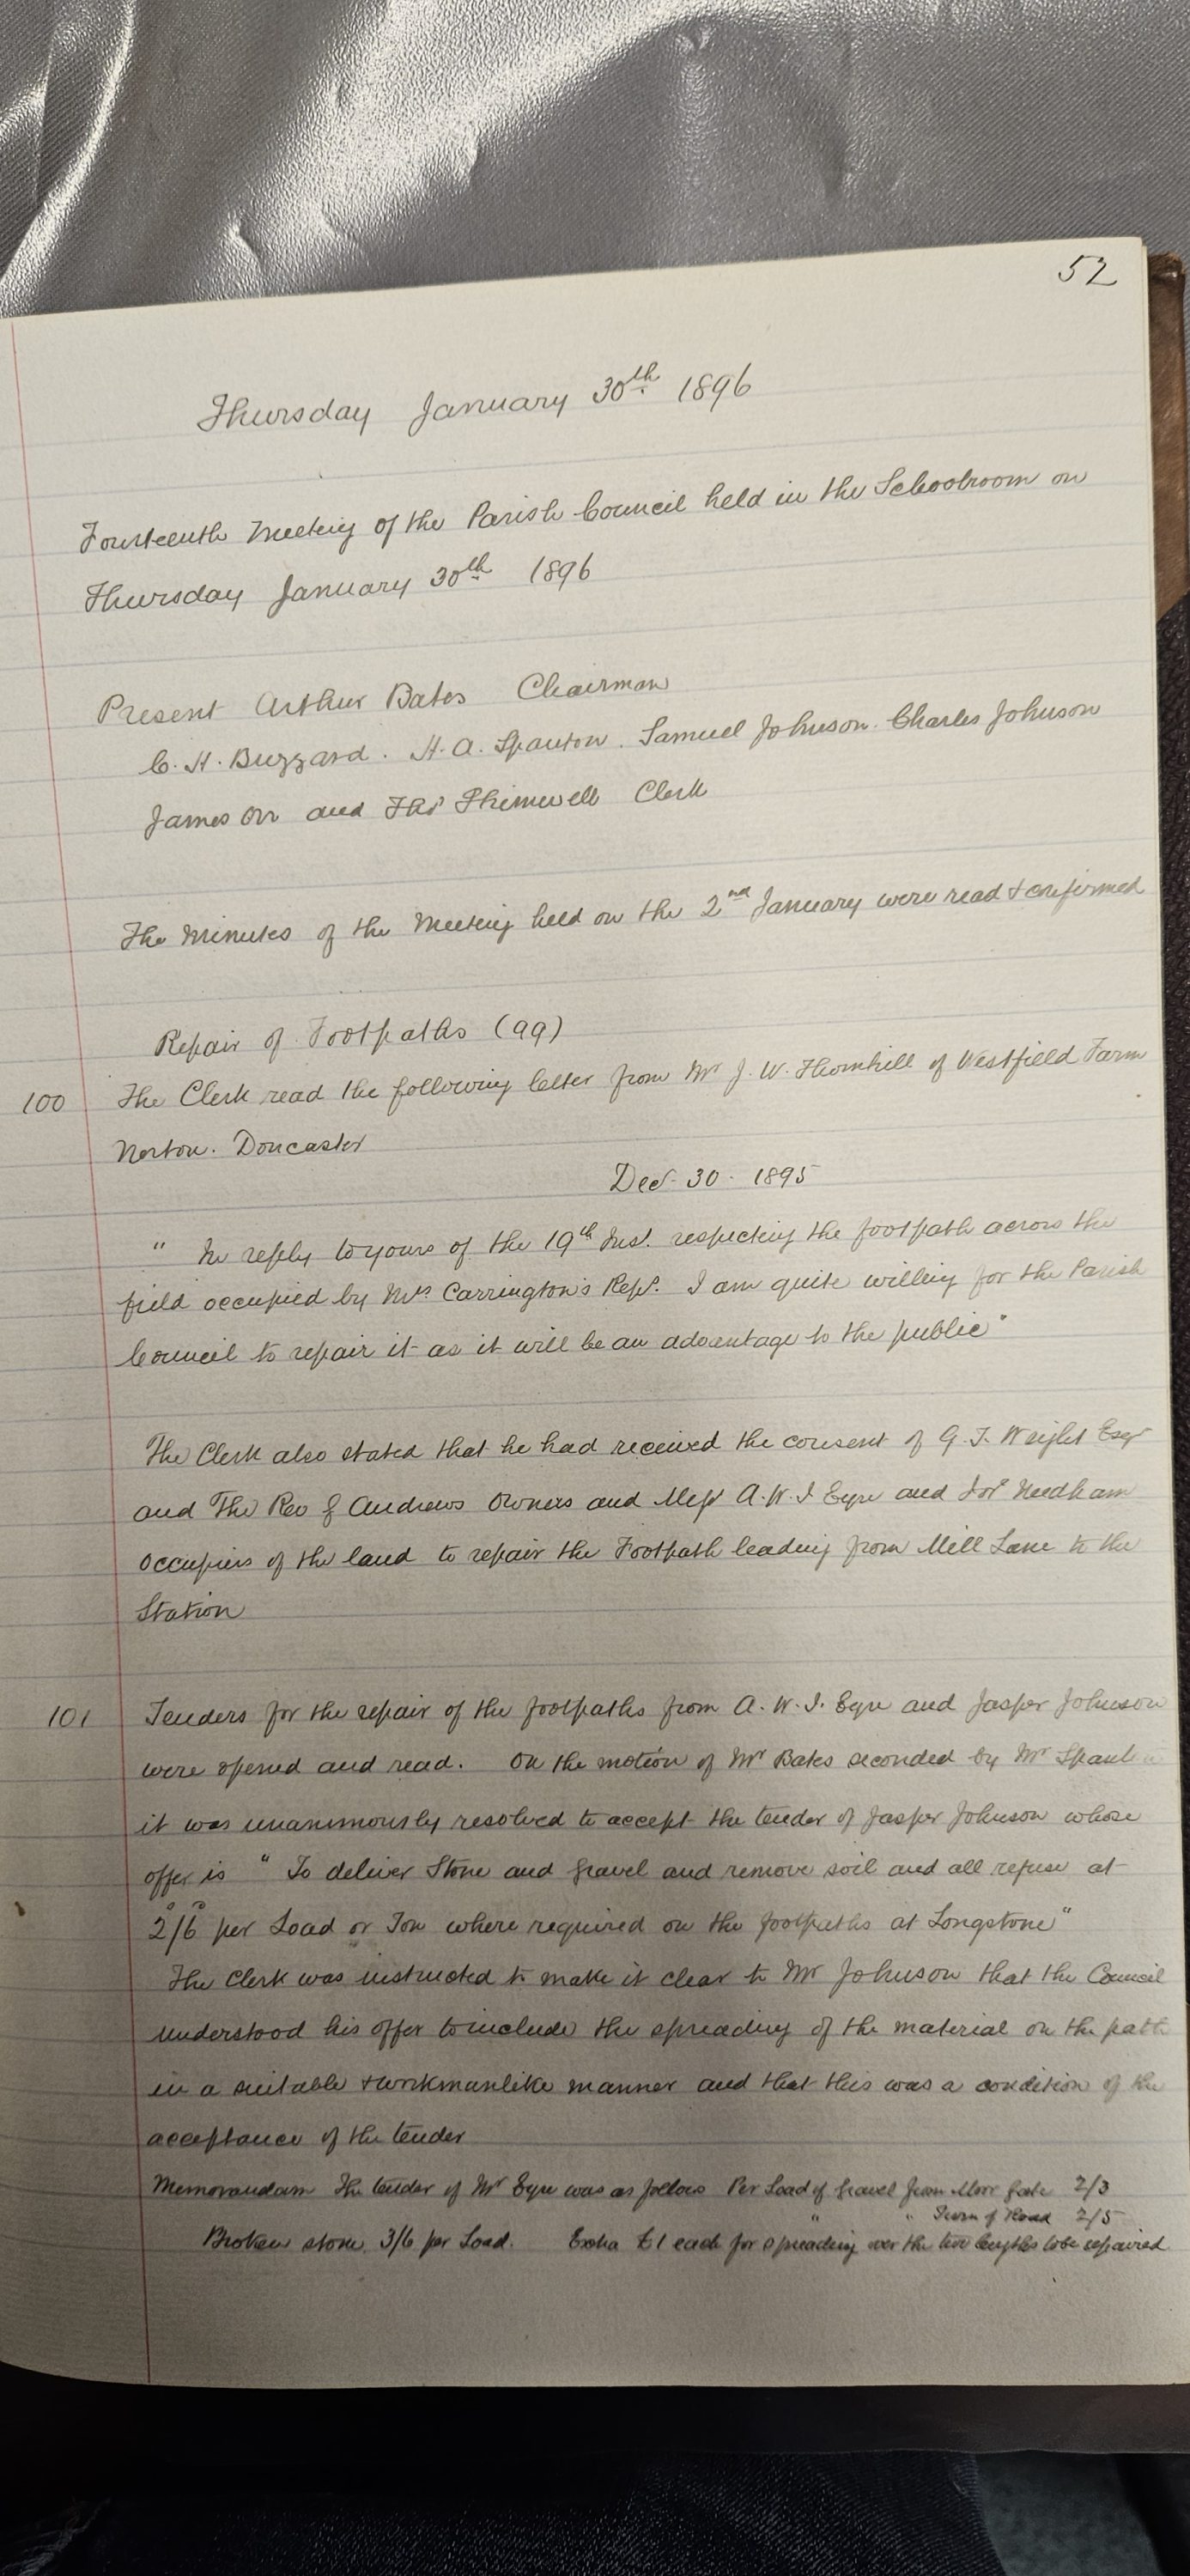 52
Thursday January 30th 1896
Fourteenth Meeting of the Parish Council held in the Schoolroom on
Thursday January 30th 1896
Present Arthur Bates Chairman
C. H. Buzzard. H. A. Spanton. Samuel Johnson. Charles Johnson
James Orr and Thos Shimwell Clerk
The Minutes of the Meeting held on the 2nd January were read & confirmed
Repair of Footpaths (99)
100 The Clerk read the following letter from Mr J. W. Thornhill of Westfield Farm
Norton. Doncaster
Decr 30. 1895
" In reply to yours of the 19th Inst. respecting the footpath across the
field occupied by Mrs Carrington's Reps. I am quite willing for the Parish
Council to repair it as it will be an advantage to the public"
The Clerk also stated that he had received the consent of G. T. Wright Esqr
and The Rev J Andrews Owners and Messrs A. W. I Eyre and Needham
occupiers of the land to repair the Footpath leading from Mill Lane to the
Station
101 Tenders for the repair of the footpaths from A. W. I. Eyre and Jasper Johnson
were opened and read. On the motion of Mr Bates seconded by Mr Spanton
it was unanimously resolved to accept the tender of Jasper Johnson whose
offer is "To deliver Stone and gravel and remove soil and all refuse at
2/6 per Load or Ton where required on the footpaths at Longstone"
The Clerk was instructed to make it clear to Mr Johnson that the Council
understood his offer to include the spreading of the material on the path
in a suitable & workmanlike manner and that this was a condition of the
acceptance of the tender
Memorandum The tender of Mr Eyre was as follows Per Load of gravel from Moor Gate 2/3
" " Turn of Road 2/5
Broken stone 3/6 per Load. Extra £1 each for spreading over the two lengths to be repaired